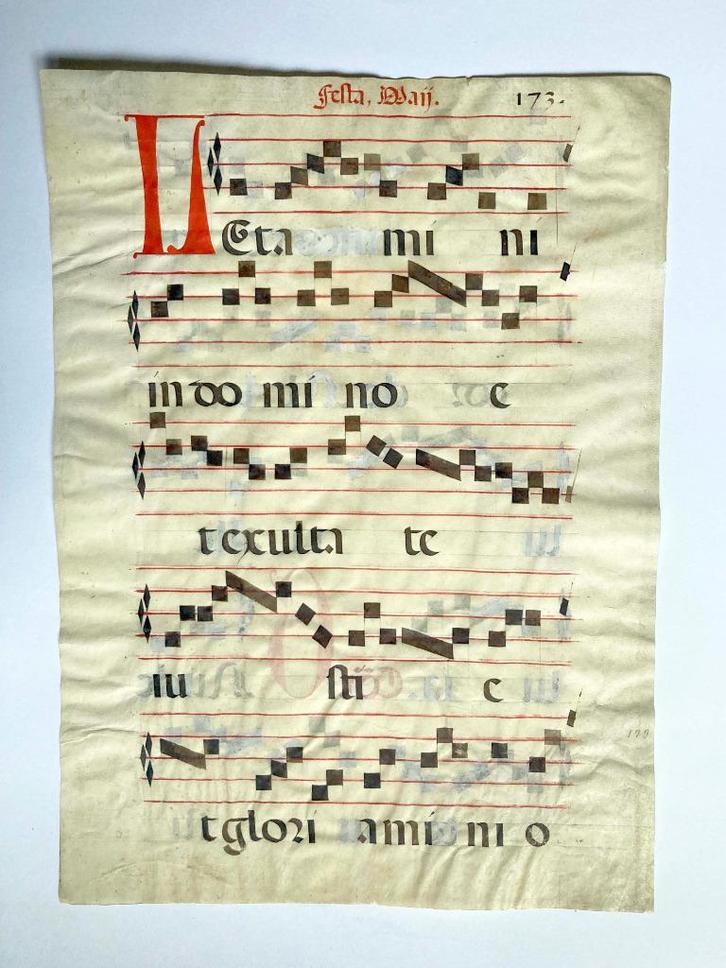 Festa. Maij. 173.
LEta mi ni
in do mi no e
t exulta te
iu sti e
t glori ami ni o